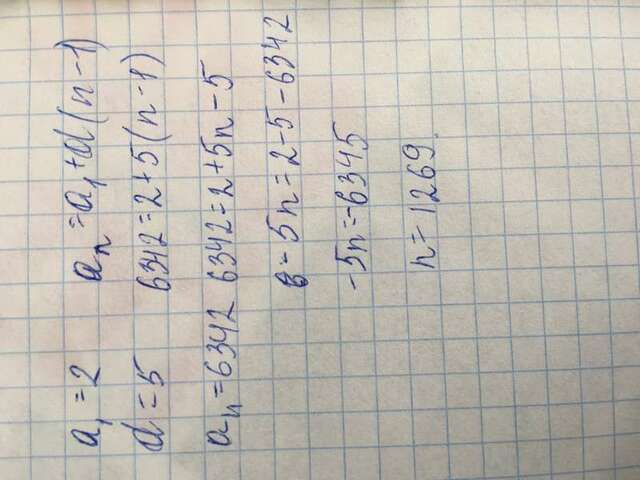 a₁ = 2 aₙ = a₁ + d(n - 1)
d = 5 6342 = 2 + 5(n - 1)
aₙ = 6342 6342 = 2 + 5n - 5
- 5n = 2 - 5 - 6342
- 5n = - 6345
n = 1269.